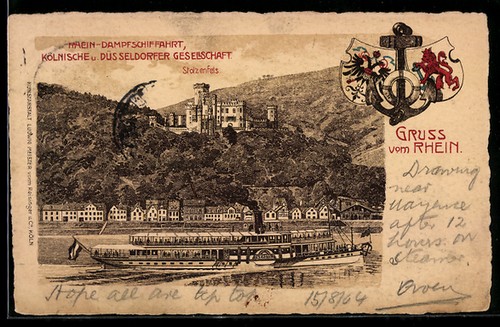 RHEIN-DAMPFSCHIFFAHRT,
KÖLNISCHE U. DÜSSELDORFER GESELLSCHAFT.
Stolzenfels.
GRUSS
VOM RHEIN.
Drawing
near
Mayence
after 12
hours on
steamer.
Hope all are tip top
15/8/04